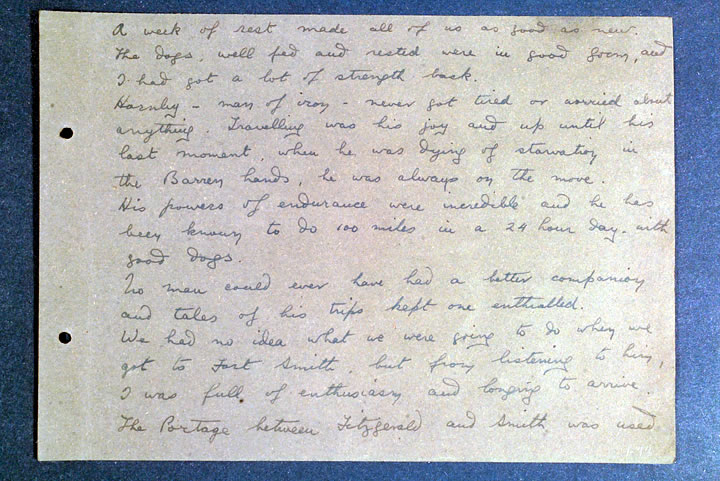 A week of rest made all of us as good as new.
The dogs, well fed and rested were in good form, and
I had got a lot of strength back.
Hornby - man of iron - never got tired or worried about
anything. Travelling was his joy and up until his
last moment, when he was dying of starvation in
the Barren Lands, he was always on the move.
His powers of endurance were incredible and he has
been known to do 100 miles in a 24 hour day. with
good dogs.
No man could ever have had a better companion
and tales of his trips kept one enthralled.
We had no idea what we were going to do when we
got to Fort Smith, but from listening to him,
I was full of enthusiasm and longing to arrive.
The Portage between Fitzgerald and Smith was used